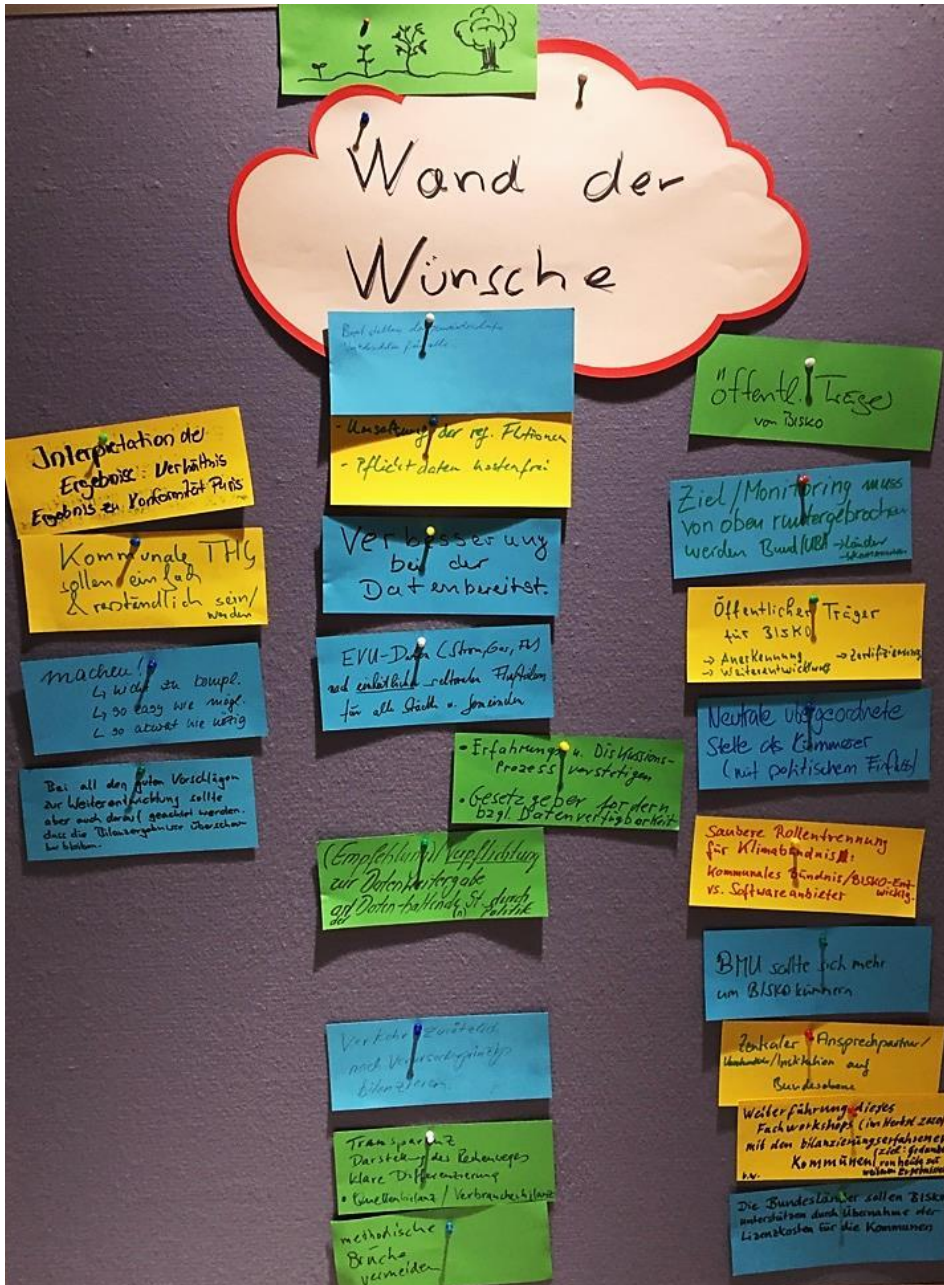 Wand der
Wünsche
Interpretation der
Ergebnisse: Verhältnis
Ergebnis zu Konformität Paris
Kommunale THG
sollen einfach
& verständlich sein/
werden
machen!
↳ nicht zu kompl.
↳ so easy wie mögl.
↳ so akurat wie nötig
Bei all den guten Vorschlägen
zur Weiterentwicklung sollte
aber auch darauf geachtet werden,
dass die Bilanzergebnisse überschau-
bar bleiben.
für alle
- Umsetzung der reg. Flutionen
- Pflichtdaten kostenfrei
Verbesserung
bei der
Datenbereitst.
EVU-Daten (Strom, Gas, FW)
nach
für alle Städte u. Gemeinden
• Erfahrungs u. Diskussions-
Prozess verstetigen
• Gesetzgeber fordern
bzgl. Datenverfügbarkeit
(Empfehlung) Verpflichtung
zur Datenweitergabe
an Daten-haltende St. durch
der (n) Politik
Verkehr zusätzlich
nach Verursacherprinzip
bilanzieren
Transparenz
Darstellung des Rechenweges
klare Differenzierung
• Quellenbilanz / Verbraucherbilanz
methodische
Brüche
vermeiden
öffentl. Träger
von BISKO
Ziel/Monitoring muss
von oben runtergebrochen
werden Bund/UBA → Länder
→ Kommunen
Öffentlicher Träger
für BISKO
→ Anerkennung → Zertifizierung
→ Weiterentwicklung
Neutrale übergeordnete
Stelle als Kümmerer
(mit politischem Einfluss)
Saubere Rollentrennung
für Klimabündnis:
Kommunales Bündnis/BISKO-Ent-
wicklg.
vs. Softwareanbieter
BMU sollte sich mehr
um BISKO kümmern
Zentraler Ansprechpartner/
/Institution auf
Bundesebene
Weiterführung dieses
Fachworkshops (im Herbst 2020)
mit den bilanzierungserfahrenen
Kommunen
Die Bundesländer sollen BISKO
unterstützen durch Übernahme der
Lizenzkosten für die Kommunen